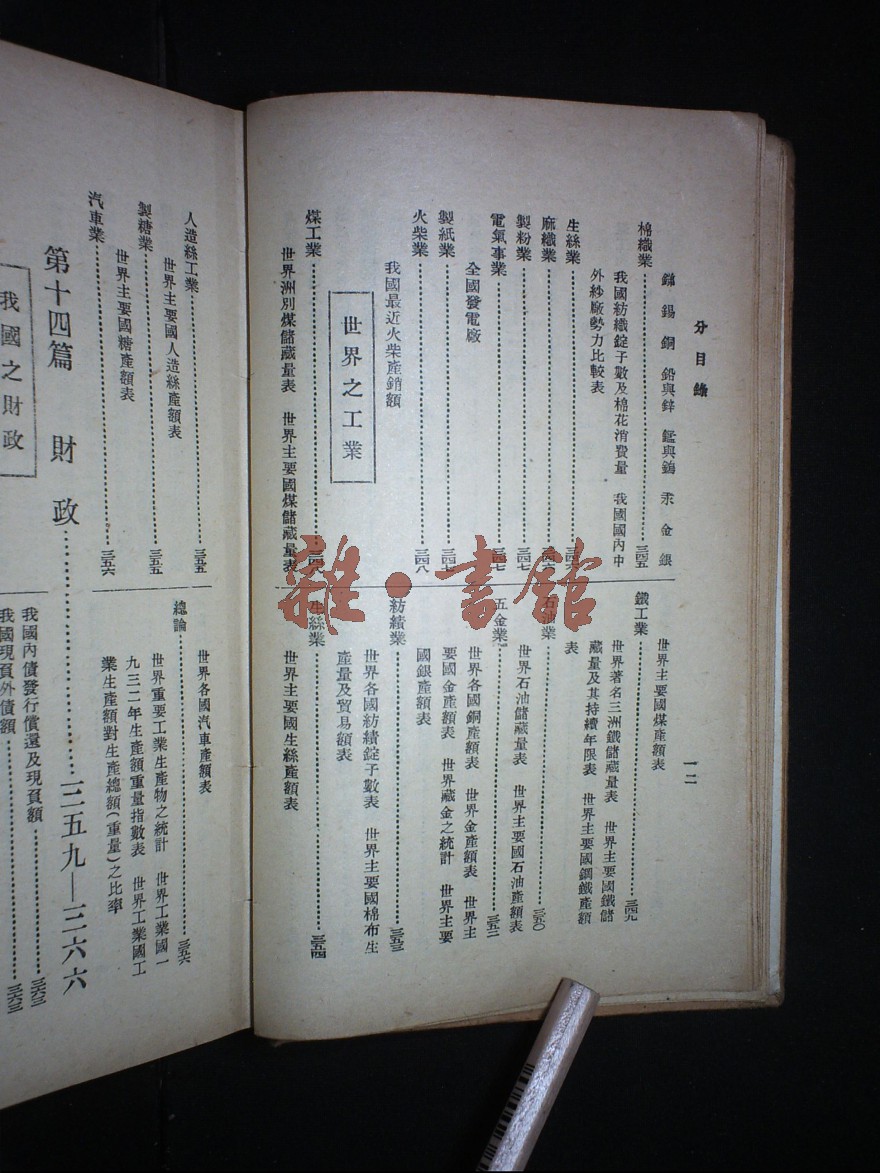 分目錄
一二
銻 錫 銅 鉛與鋅 錳與鎢 汞 金 銀
棉織業 三四五
我國紡織錠子數及棉花消費量 我國國內中
外紗廠勢力比較表
生絲業
麻織業 三四六
製粉業 三四七
電氣事業 三四七
全國發電廠
製紙業 三四七
火柴業 三四八
我國最近火柴產銷額
世界之工業
煤工業 三四八
世界洲別煤儲藏量表 世界主要國煤儲藏量表
世界主要國煤產額表
鐵工業 三四九
世界著名三洲鐵儲藏量表 世界主要國鐵儲
藏量及其持續年限表 世界主要國鋼鐵產額
表
石油業 三五〇
世界石油儲藏量表 世界主要國石油產額表
五金業 三五二
世界各國銅產額表 世界金產額表 世界主
要國金產額表 世界藏金之統計 世界主要
國銀產額表
紡績業 三五三
世界各國紡績錠子數表 世界主要國棉布生
產量及貿易額表
生絲業 三五四
世界主要國生絲產額表
人造絲工業 三五五
世界主要國人造絲產額表
製糖業 三五五
世界主要國糖產額表
汽車業 三五六
世界各國汽車產額表
總論 三五六
世界重要工業生產物之統計 世界工業國一
九三二年生產額重量指數表 世界工業國工
業生產額對生產總額(重量)之比率
第十四篇 財政 三五九—三六六
我國之財政
我國內債發行償還及現負額 三六三
我國現負外債額 三六三
雜·書館